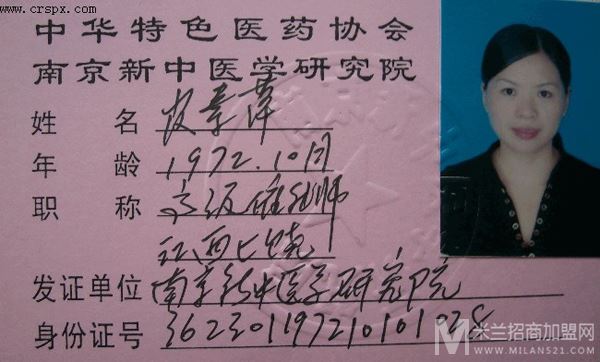 www.crspx.com
中华特色医药协会
南京新中医学研究院
姓 名 皮素萍
年 龄 1972.10月
职 称 高级催乳师
江西上饶
发证单位 南京新中医学研究院
身份证号
米兰招商加盟网
WWW.MILAN521.COM